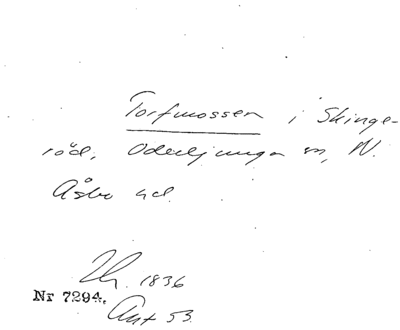 Torfmossen i Skinge-
röd, Oderljunga sn, N.
Åsbo hd.
Th. 1836
Nr 7294.
Ant 53